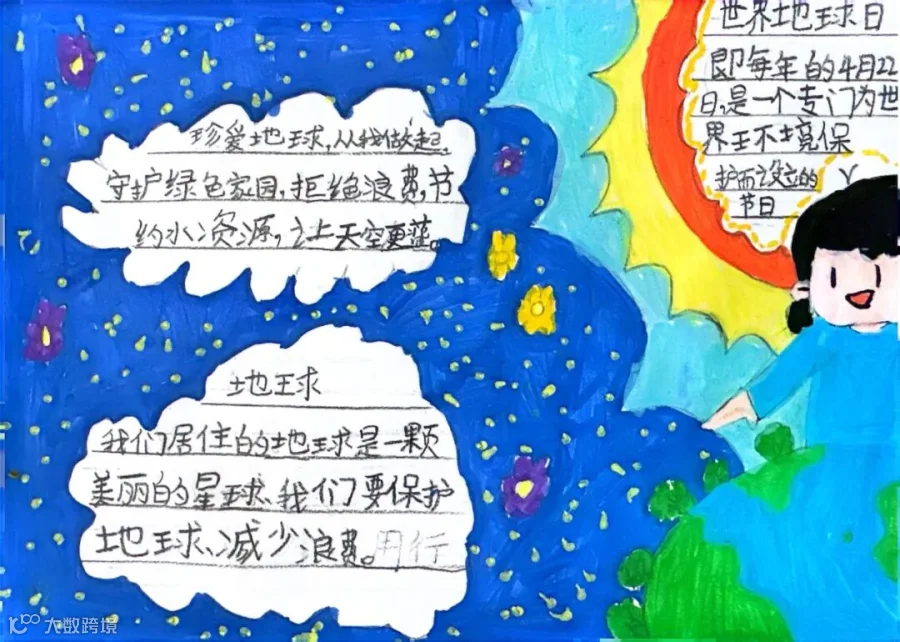 世界地球日
即每年的4月22
日,是一个专门为世
界环境保
护而设立的
节日
珍爱地球,从我做起,
守护绿色家园,拒绝浪费,节
约水资源,让天空更蓝。
地球
我们居住的地球是一颗
美丽的星球、我们要保护
地球、减少浪费。用行
大数跨境